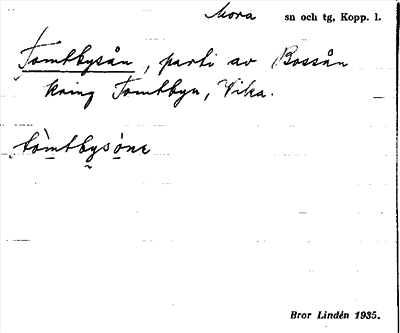 Mora sn och tg, Kopp. l.
Tomtbysån, parti av Bossån
kring Tomtbyn, Vika.
tòmtbysóne
Bror Lindén 1935.